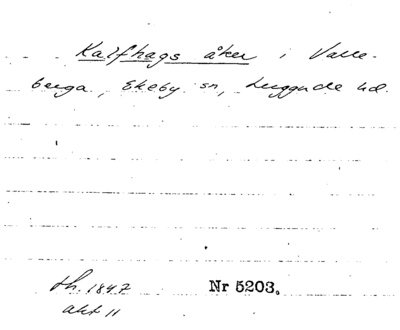 Kalfhags åker i Valle-
berga, Ekeby sn, Luggude hd.
th. 1847 Nr 5203.
akt 11